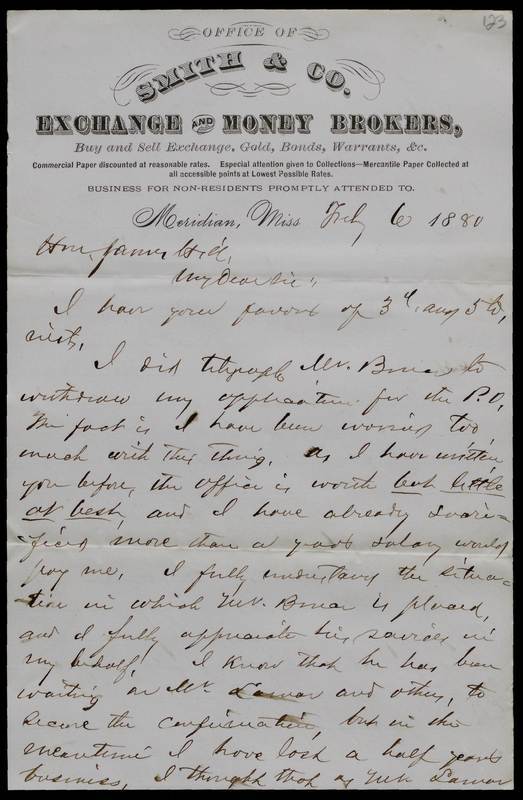 123
OFFICE OF
SMITH & CO.
EXCHANGE AND MONEY BROKERS,
Buy and Sell Exchange, Gold, Bonds, Warrants, &c.
Commercial Paper discounted at reasonable rates. Especial attention given to Collections—Mercantile Paper Collected at
all accessible points at Lowest Possible Rates.
BUSINESS FOR NON-RESIDENTS PROMPTLY ATTENDED TO.
Meridian, Miss Feby 6 1880
Hon. James Hill,
My Dear Sir:
I have your favors of 3d and 5th,
inst,
I did telegraph Mr. Bruce to
withdraw my application for the P.O,
The fact is I have been worried too
much with this thing. as I have written
you before, the office is worth but little
at best, and I have already sacri-
ficed more than a years salary would
pay me. I fully understand the situa-
tion in which Mr. Bruce is placed,
and I fully appreciate his services in
my behalf. I know that he has been
waiting on Mr. Lamar and others, to
secure the confirmation, but in the
meantime I have lost a half years
business, I thought that as Mr. Lamar